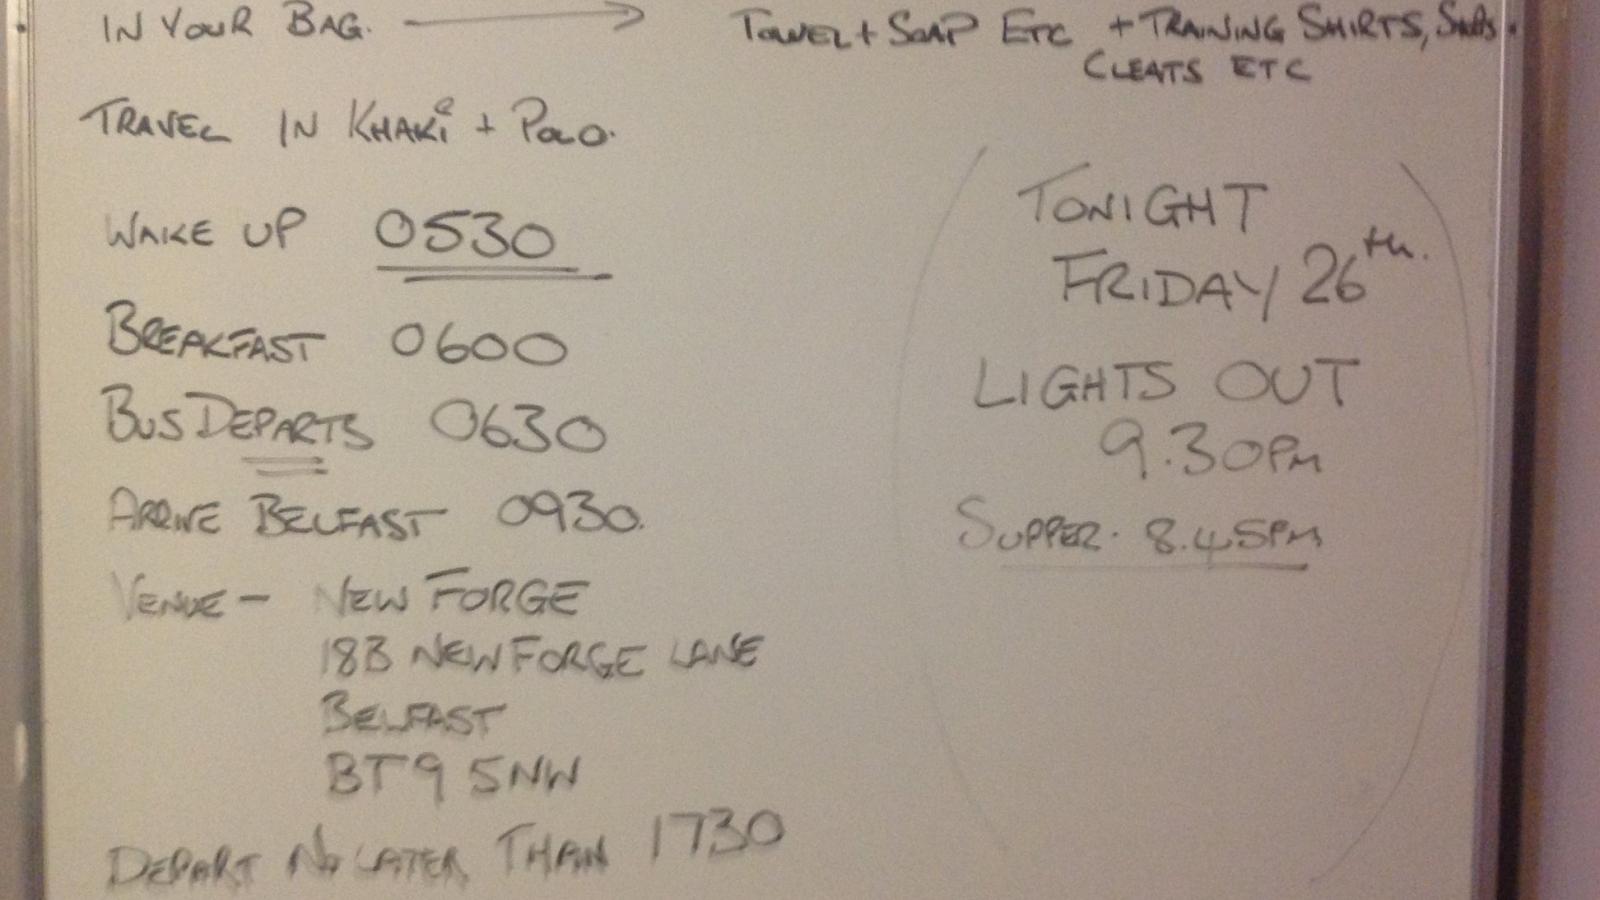 IN YOUR BAG. → TOWEL + SOAP ETC + TRAINING SHIRTS,
CLEATS ETC
TRAVEL IN KHAKI + POLO.
WAKE UP 0530
BREAKFAST 0600
BUS DEPARTS 0630
ARRIVE BELFAST 0930.
VENUE - NEW FORGE
18B NEW FORGE LANE
BELFAST
BT9 5NW
DEPART NO LATER THAN 1730
TONIGHT
FRIDAY 26th.
LIGHTS OUT
9.30PM
SUPPER. 8.45PM